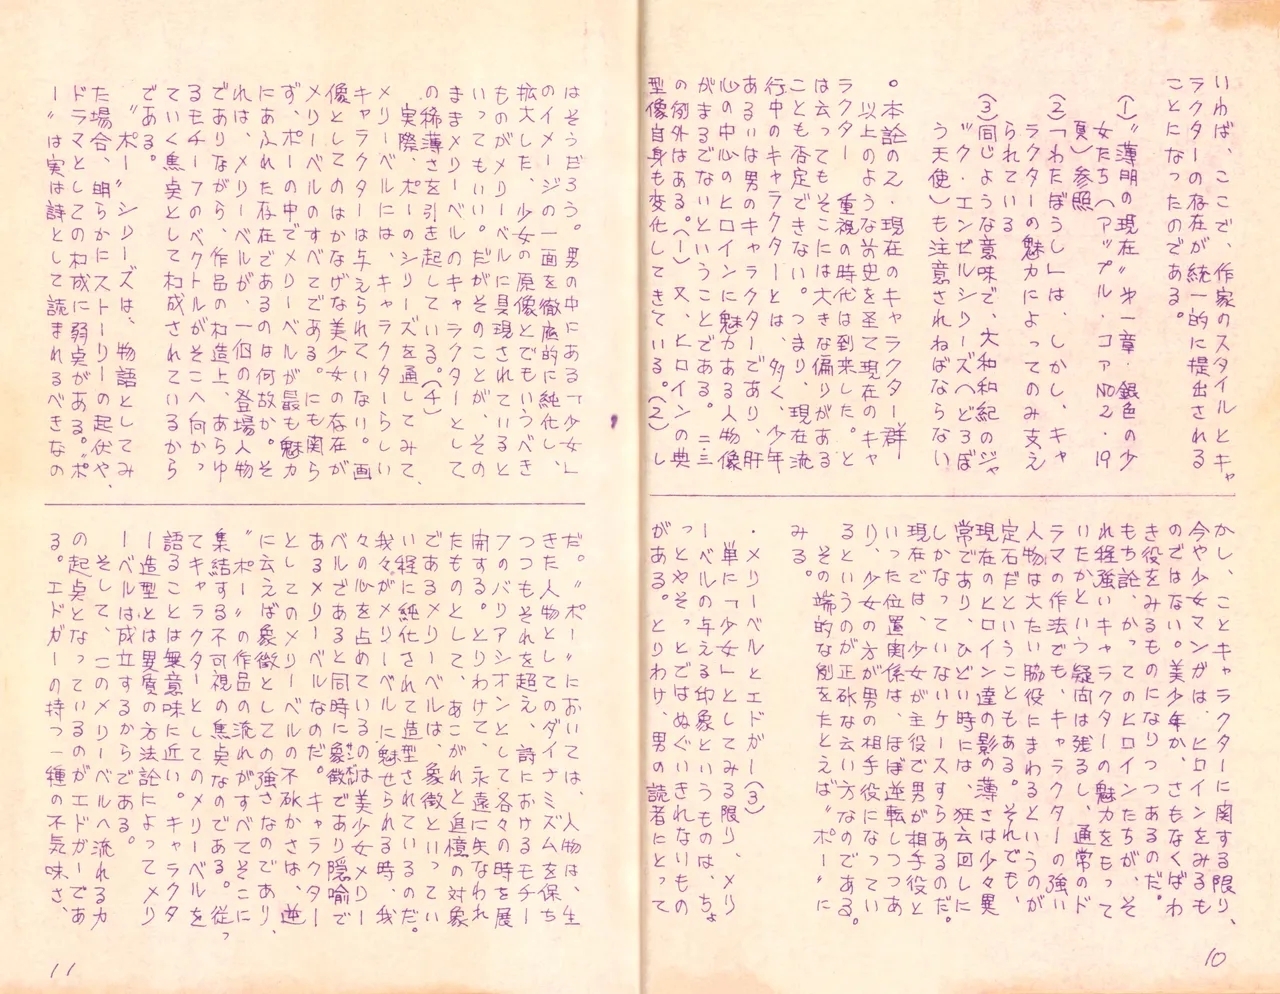 いわば、ここで、作家のスタイルとキャ
ラクターの存在が統一的に提出される
ことになったのである。
(1)〝薄明の現在〟第一章・銀色の少
女たち(アップル・コアNO2・19
夏)参照
(2)「わたぼうし」は、しかし、キャ
ラクターの魅力によってのみ支え
られている
(3)同じような意味で、大和和紀のジャ
ック・エンゼルシリーズへどろぼ
う天使)も注意されねばならない
○本論の2・現在のキャラクター群
以上のような前史を圣て現在のキャ
ラクター重視の時代は到来した。と
は云ってもそこには大きな偏りがある
ことも否定できない。つまり、現在流
行中のキャラクターとは、多く、少年
あるいは男のキャラクターであり、肝
心の中心のヒロインに魅力ある人物像
がまるでないということである。二、三
の例外はある。(1)又、ヒロインの典
型像自身も変化してきている。(2)し
かし、ことキャラクターに関する限り、
今や少女マンガは、ヒロインをみるも
のではない。美少年か、さもなくばわ
き役をみるものになりつつあるのだ。
もち論、かってのヒロインたちが、そ
れ程強いキャラクターの魅力をもって
いたかという疑問は残るし、通常のド
ラマの作法でも、キャラクターの強い
人物は大たい脇役にまわるというのが
定石だということもある。それでも、
現在のヒロイン達の影の薄さは少々異
常であり、ひどい時には、狂言回しに
しかなっていないケースすらあるのだ。
現在では、少女が主役で男が相手役と
いった位置関係は、ほぼ逆転しつつあ
り、少女の方が男の相手役になってい
るというのが正砿な云い方なのである。
その端的な例をたとえば〝ポー〟に
みる。
・メリーベルとエドガー(3)
単に「少女」としてみる限り、メリ
ーベルの与える印象というものは、ちょ
っとやそっとではぬぐいきれないもの
がある。とりわけ、男の読者にとって
はそうだろう。男の中にある「少女」
のイメージの一面を徹底的に純化し、
拡大した、少女の原像とでもいうべき
ものがメリーベルに具現されていると
いってもいい。だがそのことが、その
ままメリーベルのキャラクターとして
の稀薄さを引き起している。(4)
実際、ポーのシリーズを通してみて、
メリーベルには、キャラクターらしい
キャラクターは与えられていない。画
像としてのはかなげな美少女の存在が
メリーベルのすべてである。にも関ら
ず、ポーの中でメリーベルが最も魅力
にあふれた存在であるのは何故か。そ
れは、メリーベルが、一個の登場人物
でありながら、作品の构造上、あらゆ
るモチーフのベクトルがそこへ向かっ
ていく焦点として构成されているから
である。
〝ポー〟シリーズは、物語としてみ
た場合、明らかにストーリーの起伏や、
ドラマとしての构成に弱点がある。〝ポ
ー〟は実は詩として読まれるべきなの
だ。〝ポー〟においては、人物は、生
きた人物としてのダイナミズムを保ち
つつもそれを超え、詩におけるモチー
フのバリアシオンとして各々の時を展
開する。とりわけて、永遠に失なわれ
たものとして、あこがれと追憶の対象
であるメリーベルは、象徴といってい
い程に純化されて造型されているのだ。
我々がメリーベルに魅せられる時、我
々の心を占めているのは美少女メリー
ベルであると同時に象徴であり隠喩で
あるメリーベルなのだ。キャラクター
としてのメリーベルの不砿かさは、逆
に云えば象徴としての強さなのであり、
〝ポー〟の作品の流れがすべてそこに
集結する不可視の焦点なのである。従っ
てキャラクターとしてのメリーベルを
語ることは無意味に近い。キャラクタ
ー造型とは異質の方法論によってメリ
ーベルは成立するからである。
そして、このメリーベルへ流れる力
の起点となっているのがエドガーであ
る。エドガーの持つ一種の不気味さ、
10
11